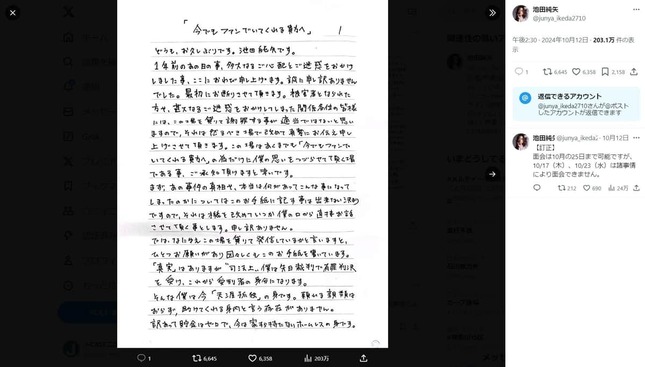 「今でもファンでいてくれる貴方へ」 1
どうも、お久しぶりです。池田純矢です。
1年前のあの日の事、多大なるご心配とご迷惑をおかけ
しました事、ここにお詫び申し上げます。誠に申し訳ありません
でした。最初にお断りさせて頂きます。被害者となられた
方や、甚大なるご迷惑をおかけしてしまった関係各位の皆様
には、この場を借りて謝罪する事が適当ではないと思い
ますので、それは然るべき場で改めて真摯にお伝え申し
上げさせて頂きます。この場はあくまでも「今でもファンで
いてくれる貴方へ。の為だけに僕の思いをつづらせて頂く場で
ある事、ご承知頂けますと幸いです。
まず、あの事件の真相や、本当は何があってこんな事になって
しまったのかについてはこのお手紙に記す事は出来ない
ですので、それは手紙を改めていつか僕の口から直接お話
させて頂く事とします。申し訳ありません。
では、なにゆえこの場を借りて発信しているかと言いますと、
ひとつお願いがあり図々しくもこのお手紙を書いています。
「真実」はありますが"司法上"僕は先日裁判で有罪判決
を受け、これから受刑者の身分になります。
そんな僕は今「天涯孤独」の身です。頼れる親類は
おらず、助けてくれる身内と言う存在がありません。
訳あって貯金はゼロで、今は家も持たないホームレスの身です。
1
6,645
6,358
203万
池田純矢
@junya_ikeda2710
午後2:30 · 2024年10月12日 · 203.1万 件の表
示
1
6,645
6,358
2,158
返信できるアカウント
@junya_ikeda2710さんが@ポスト
したアカウントが返信できます
池田純矢 @junya_ikeda2 · 10月12日
【訂正】
面会は10月の25日まで可能ですが、
10/17（木）、10/23（水）は諸事情
により面会できません。
212
690
24万